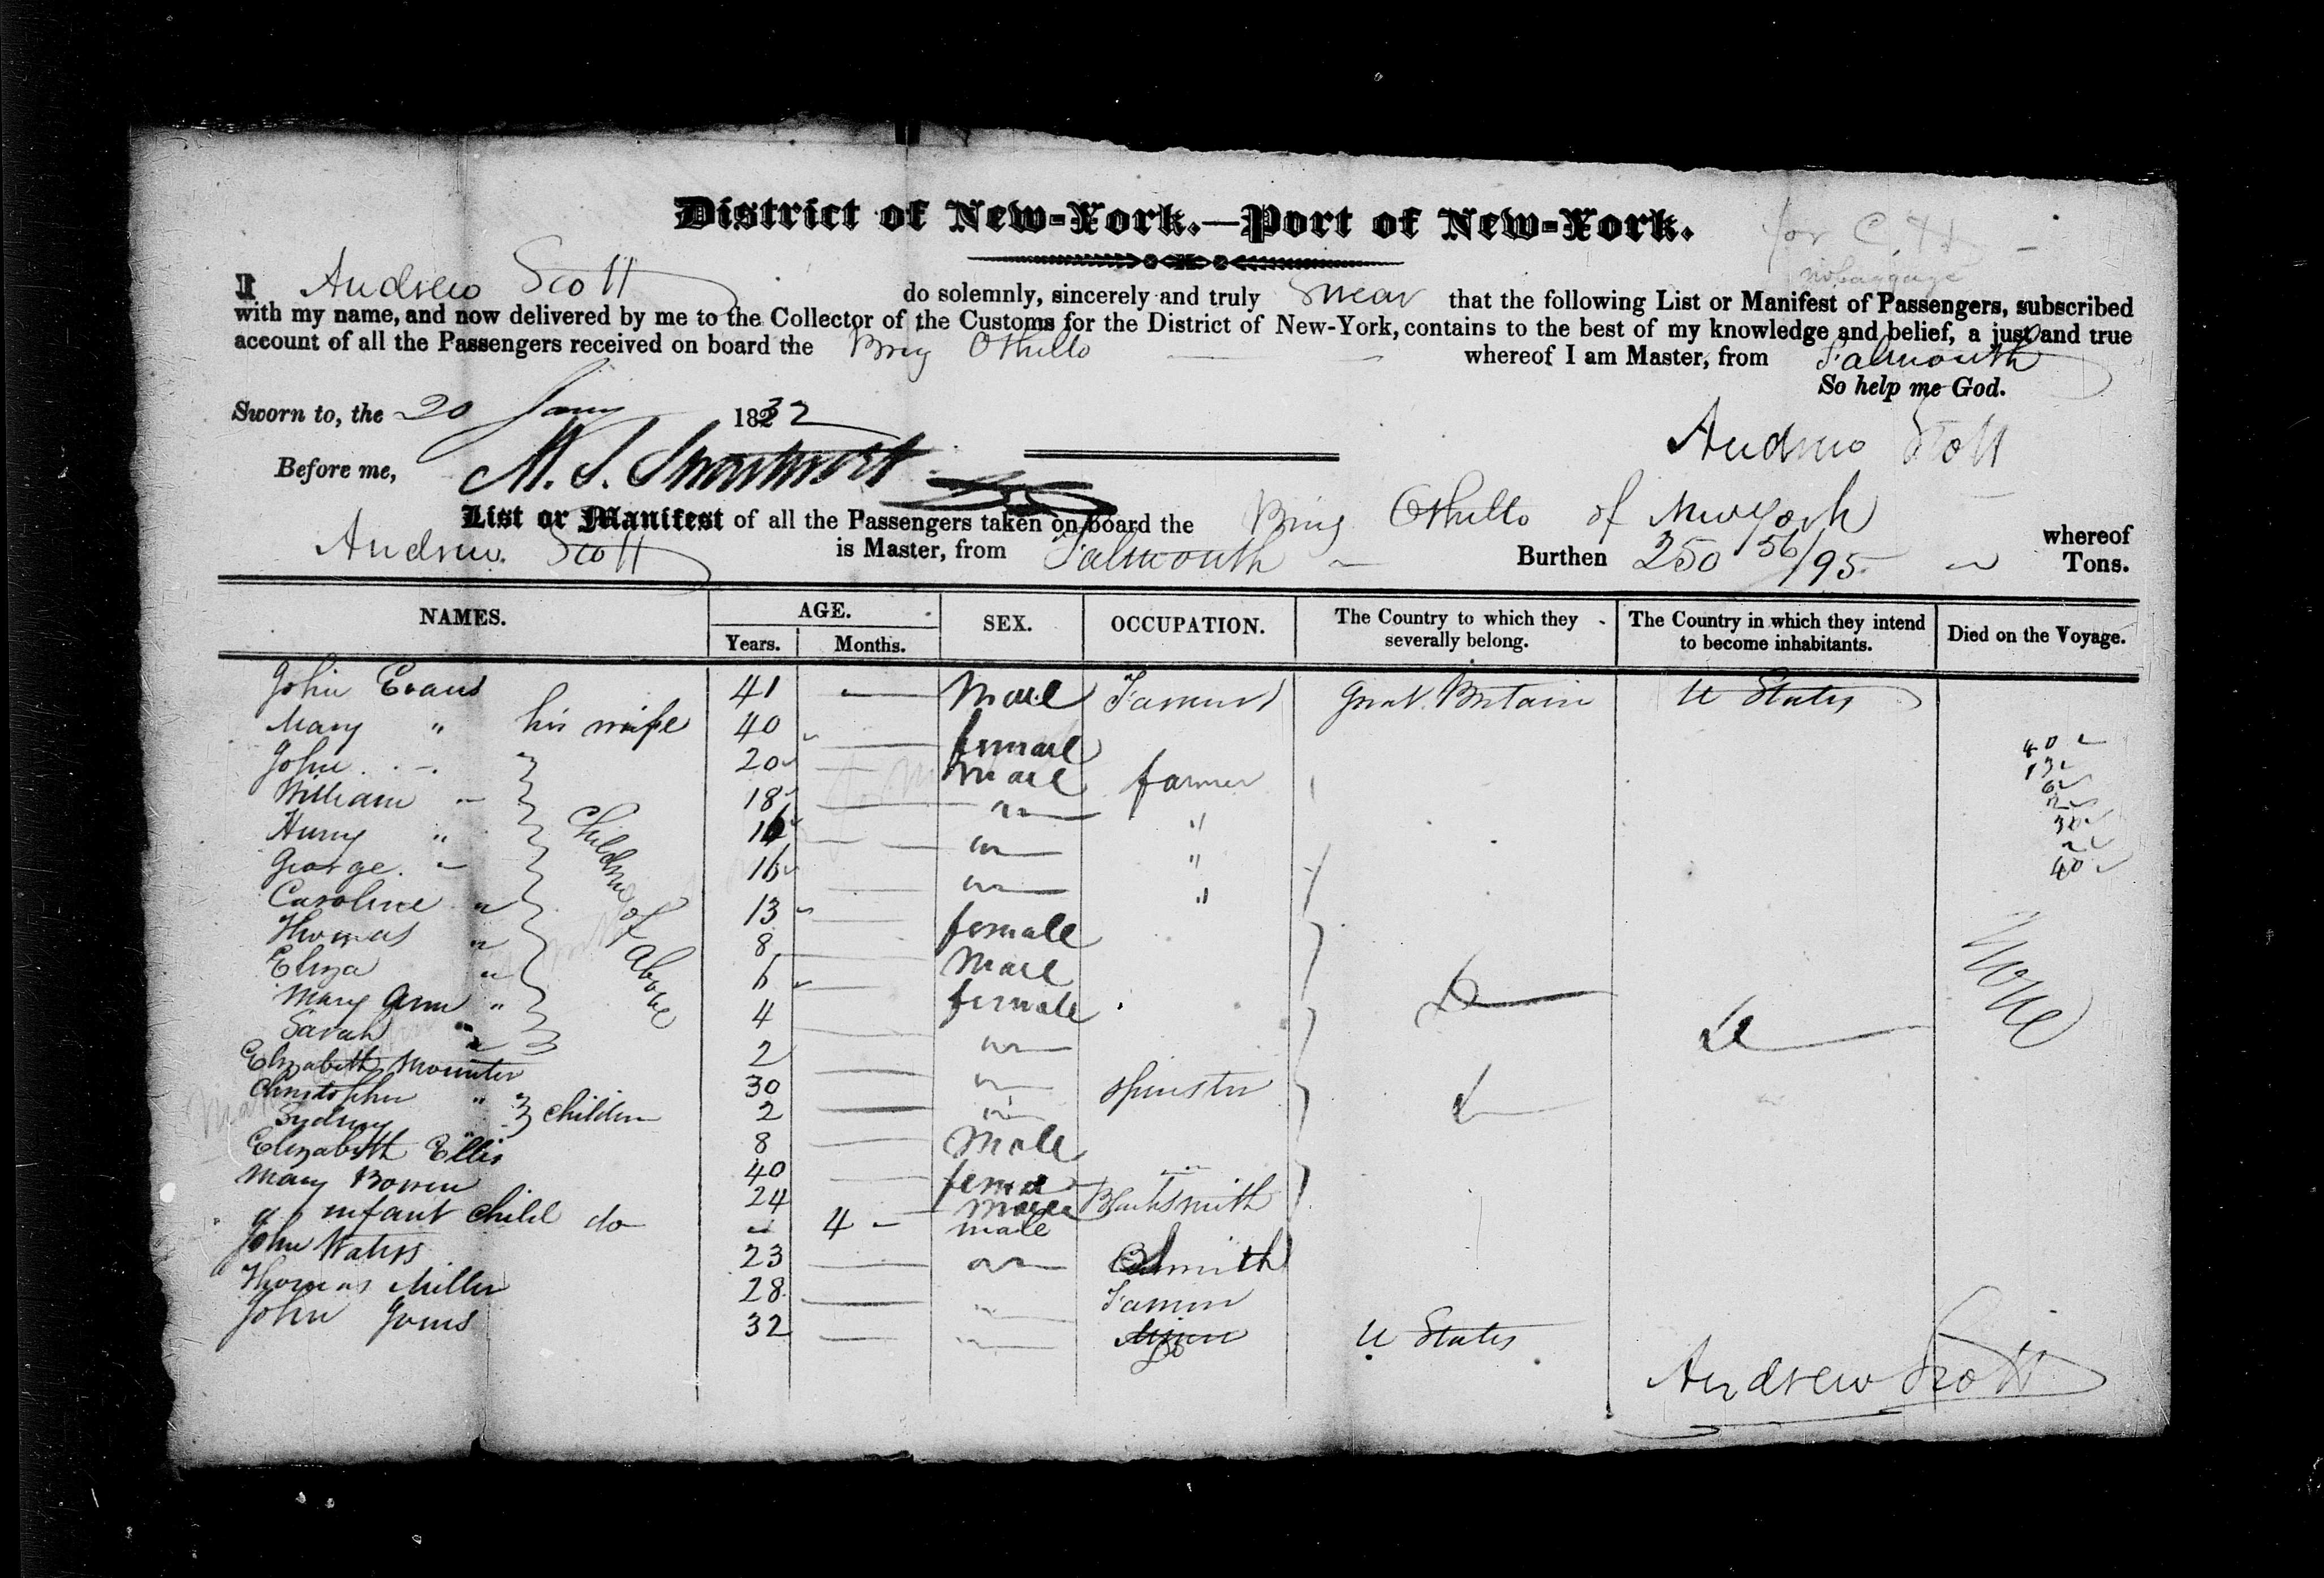 District of New-York.—Port of New-York.
for C. H
no baggage
I Andrew Scott do solemnly, sincerely and truly Swear that the following List or Manifest of Passengers, subscribed
with my name, and now delivered by me to the Collector of the Customs for the District of New-York, contains to the best of my knowledge and belief, a just and true
account of all the Passengers received on board the Brig Othello whereof I am Master, from Falmouth
So help me God.
Sworn to, the 20 Jany 1832
Andrew Scott
Before me,
List or Manifest of all the Passengers taken on board the Brig Othello of New York whereof
Andrew Scott is Master, from Falmouth Burthen 250 56/95 Tons.
NAMES. AGE. SEX. OCCUPATION. The Country to which they severally belong. The Country in which they intend to become inhabitants. Died on the Voyage.
Years. Months.
John Evans 41 — Male Farmer Great Britain U States
Mary " his wife 40 — female
John 20 — male farmer
William 18 —
Henry " 16 — "
George 16 — "
Caroline 13 — female
Thomas 8 — Male
Eliza 6 — female
Mary Ann " 4 —
Sarah 2 —
Children of above
Elizabeth Mounter 30 — Spinster
Christopher " 2 —
Sydney 8 — Male
children
Elizabeth Ellis 40 —
Mary Bowen 24 Blacksmith
infant child do 4 — male
John Waters 23 —
Thomas Miller 28 — Farmer
John 32 — U States
None
Andrew Scott